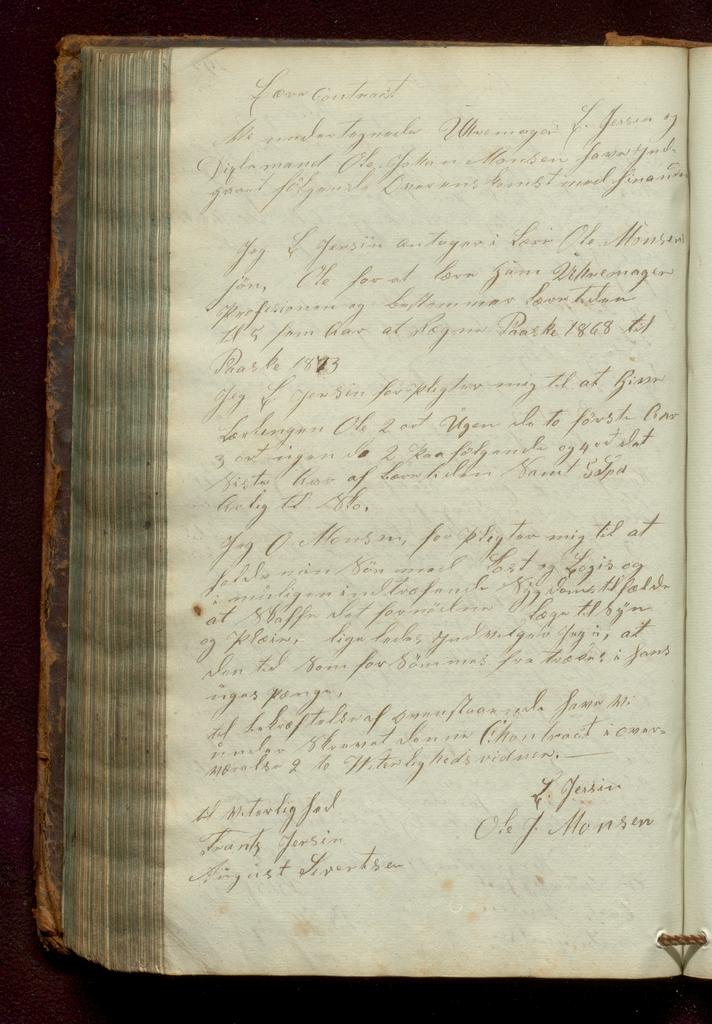 Lære Contract
Vi undertegnede Uhrmager L. Jersin og
Ole Johan Monsen have ind-
gaaet følgende Overenskomst med hinanden
Jeg L Jersin antager i Lære Ole Monsens
søn, Ole for at lære ham Uhrmager
Profesionen og bestemmer Læretiden
til 5 fem Aar at regne Paaske 1868 til
Paaske 1873
Jeg L Jersin forpligter mig til at give
Lærlingen Ole 2 ort Ugen de to første Aar
3 ort ugen de 2 paafølgende og 4 ort det
sidste Aar af Læretiden samt 5 Spd
Aarlig til Sko.
Jeg O. Monsen, forpligter mig til at
holde min Søn med Kost og Logis og
i muligen indtrafende Sygdomstilfælde
at skaffe det fornødne Læge tilsyn
og Pleie, lige ledes indvilger Jeg i, at
den tid som forsømmes fra trækes i hans
uges penge.
til bekræftelse af ovenstaaende have vi
under skrevet denne Contract i over-
værelse 2 to Viterligheds vidner. —
L. Jersin
Ole J. Monsen
til Viterlighed
Frantz Jersin
August Sivertsen